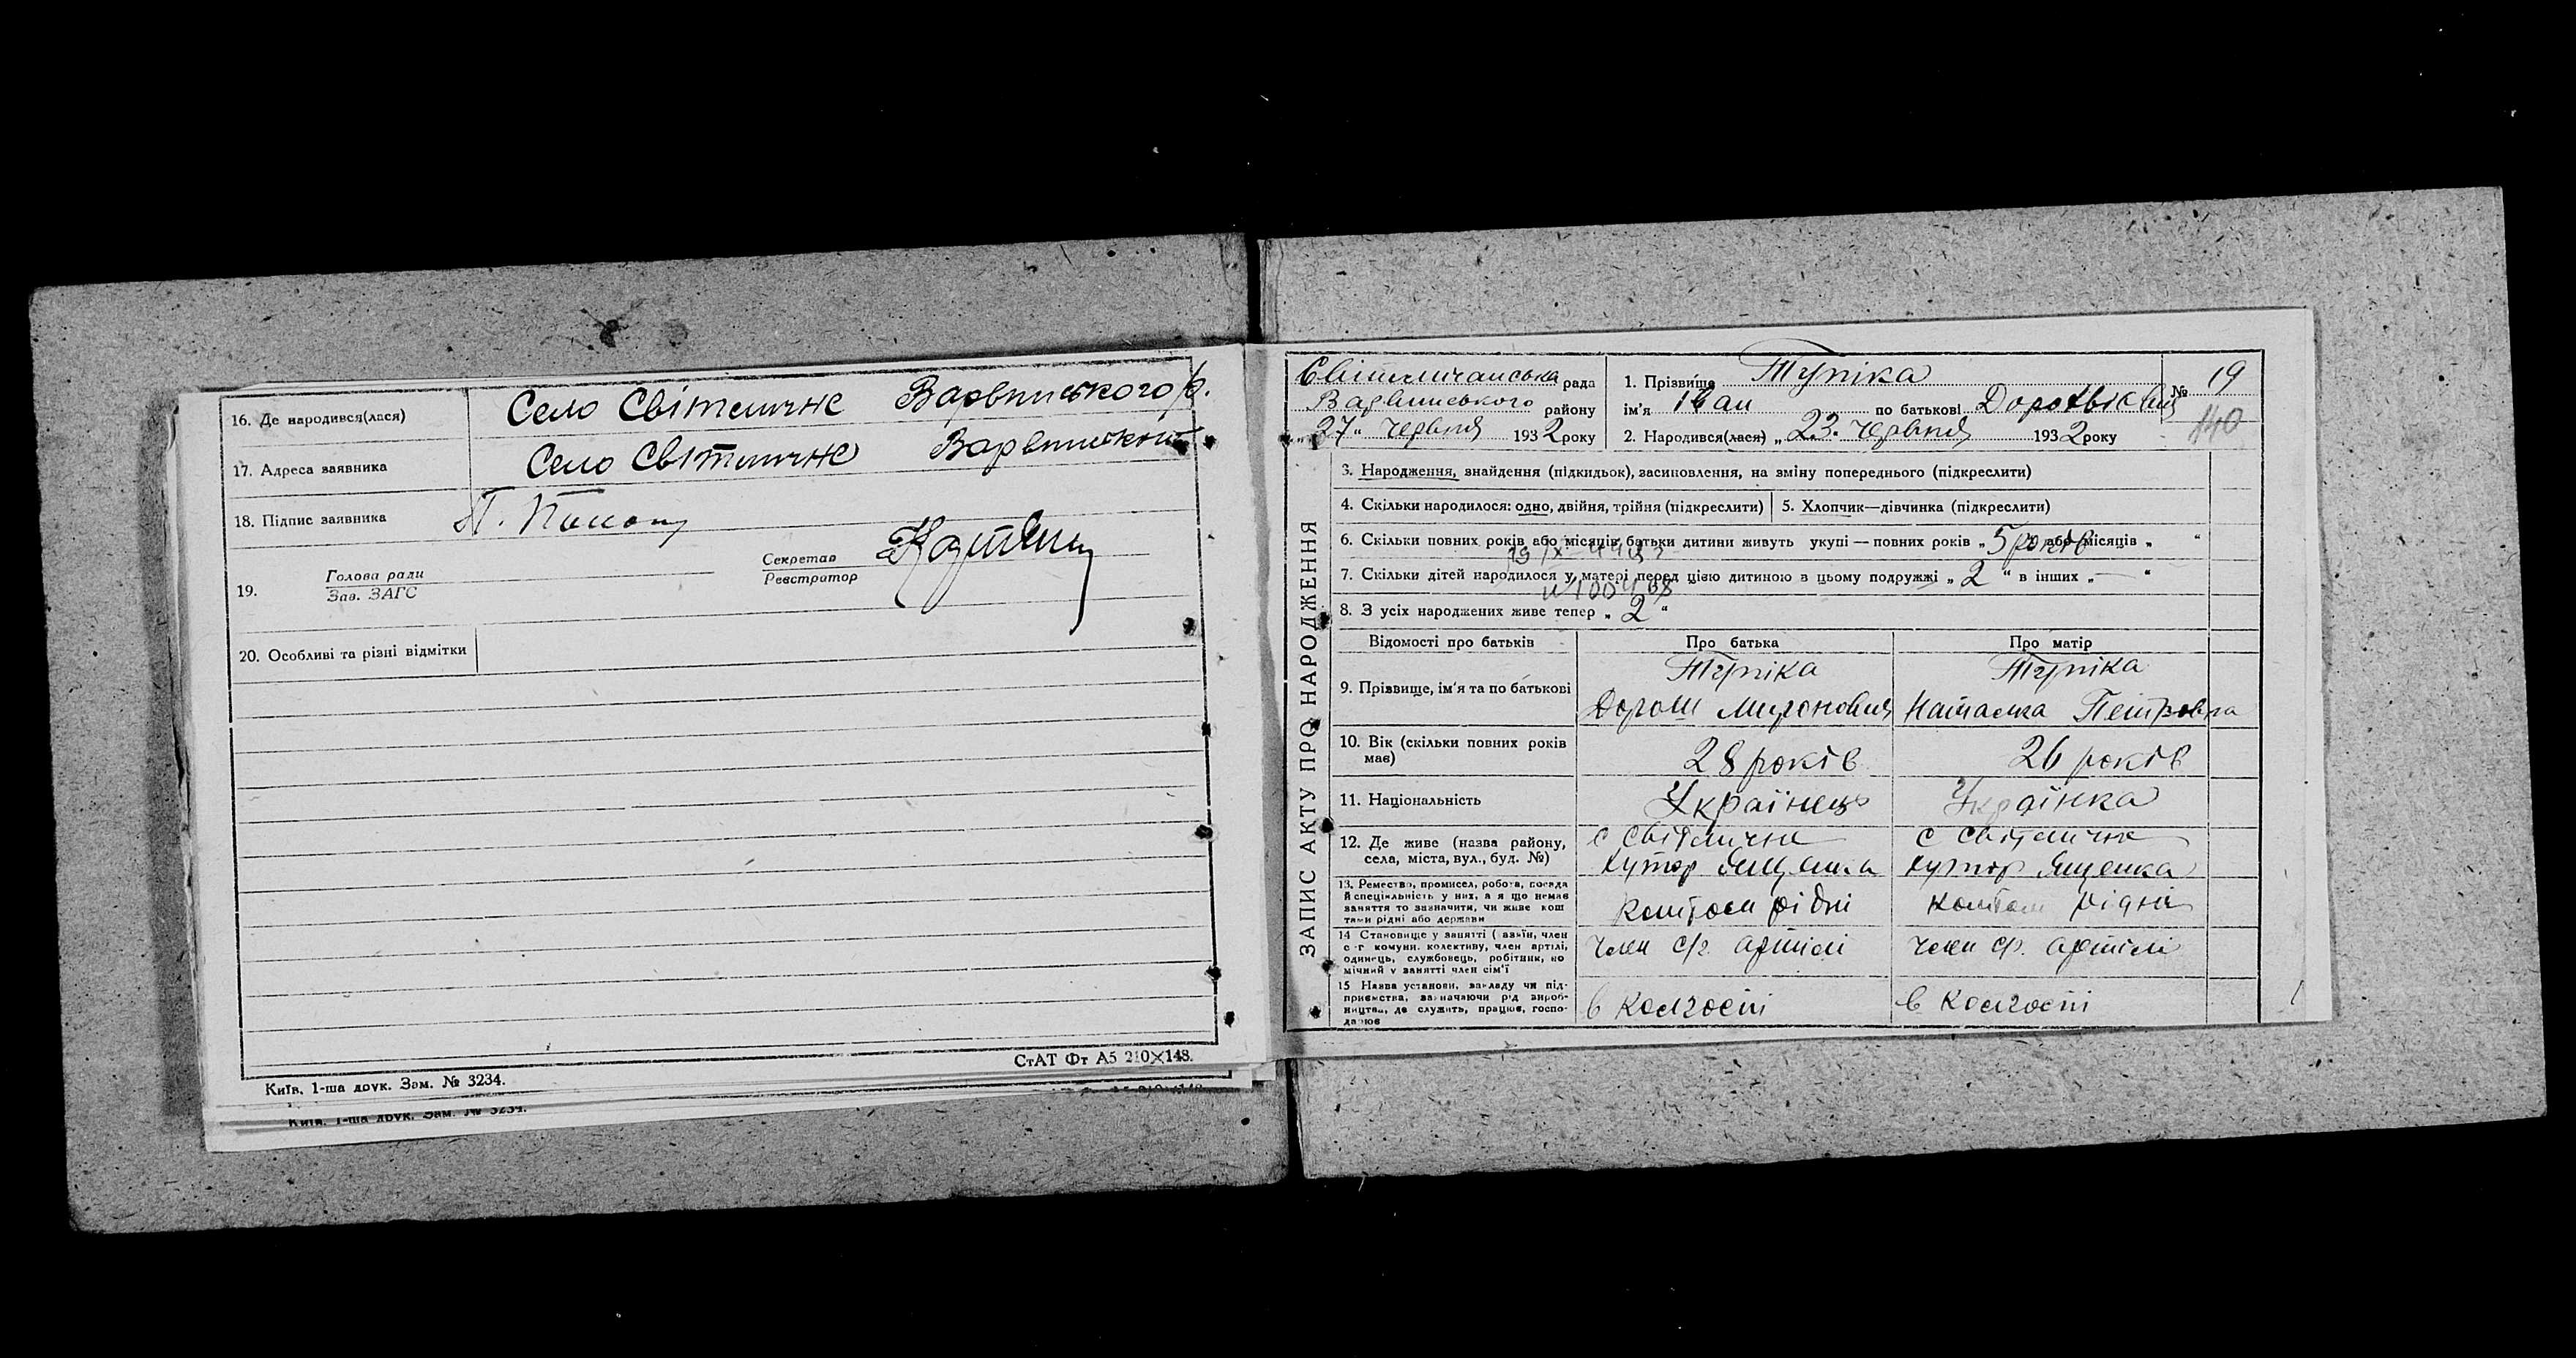 16. Де народився(лася) Село Світличне Варвинського р.
17. Адреса заявника Село Світличне Варвинського
18. Підпис заявника П.
19. Голова ради
Зав. ЗАГС
Секретар
Реєстратор
20. Особливі та різні відмітки
СтАТ Фт А5 210×148.
Київ, 1-ша друк. Зам. № 3234.
Київ, 1-ша друк. Зам. № 3234.
ЗАПИС АКТУ ПРО НАРОДЖЕННЯ
Світличанська рада
Варвинського району
„27“ червня 1932 року
1. Прізвище Тупіка
ім'я Іван по батькові
2. Народився(лася) „23. червня 1932 року
№ 19
140
3. Народження, знайдення (підкидьок), засиновлення, на зміну попереднього (підкреслити)
4. Скільки народилося: одно, двійня, трійня (підкреслити)
5. Хлопчик—дівчинка (підкреслити)
6. Скільки повних років або місяців батьки дитини живуть укупі — повних років „5 років або місяців „ “
7. Скільки дітей народилося у матері перед цією дитиною в цьому подружжі „2“ в інших „—“
8. З усіх народжених живе тепер „2“
Відомості про батьків
Про батька
Про матір
9. Прізвище, ім'я та по батькові
Тупіка
Дорош Миронович
Тупіка
Наталка Петровна
10. Вік (скільки повних років має)
28 років
26 років
11. Національність
Українець
Українка
12. Де живе (назва району,
села, міста, вул., буд. №)
с Світличне
хутор Ященка
с Світличне
хутор Ященка
13. Ремество, промисел, робота, посада
й спеціяльність у них, а якщо немає
заняття то зазначити, чи живе кош
тами рідні або держави
коштом рідні
коштом рідні
14 Становище у занятті (хазяїн, член
с-г комуни, колективу, член артілі,
одинець, службовець, робітник, по
мічний у занятті член сім'ї
член с/г. артілі
член с/г. артілі
15 Назва установи, закладу чи під-
приємства, зазначаючи рід вироб-
ництва, де служить, працює, госпо-
дарює
в колгоспі
в колгоспі